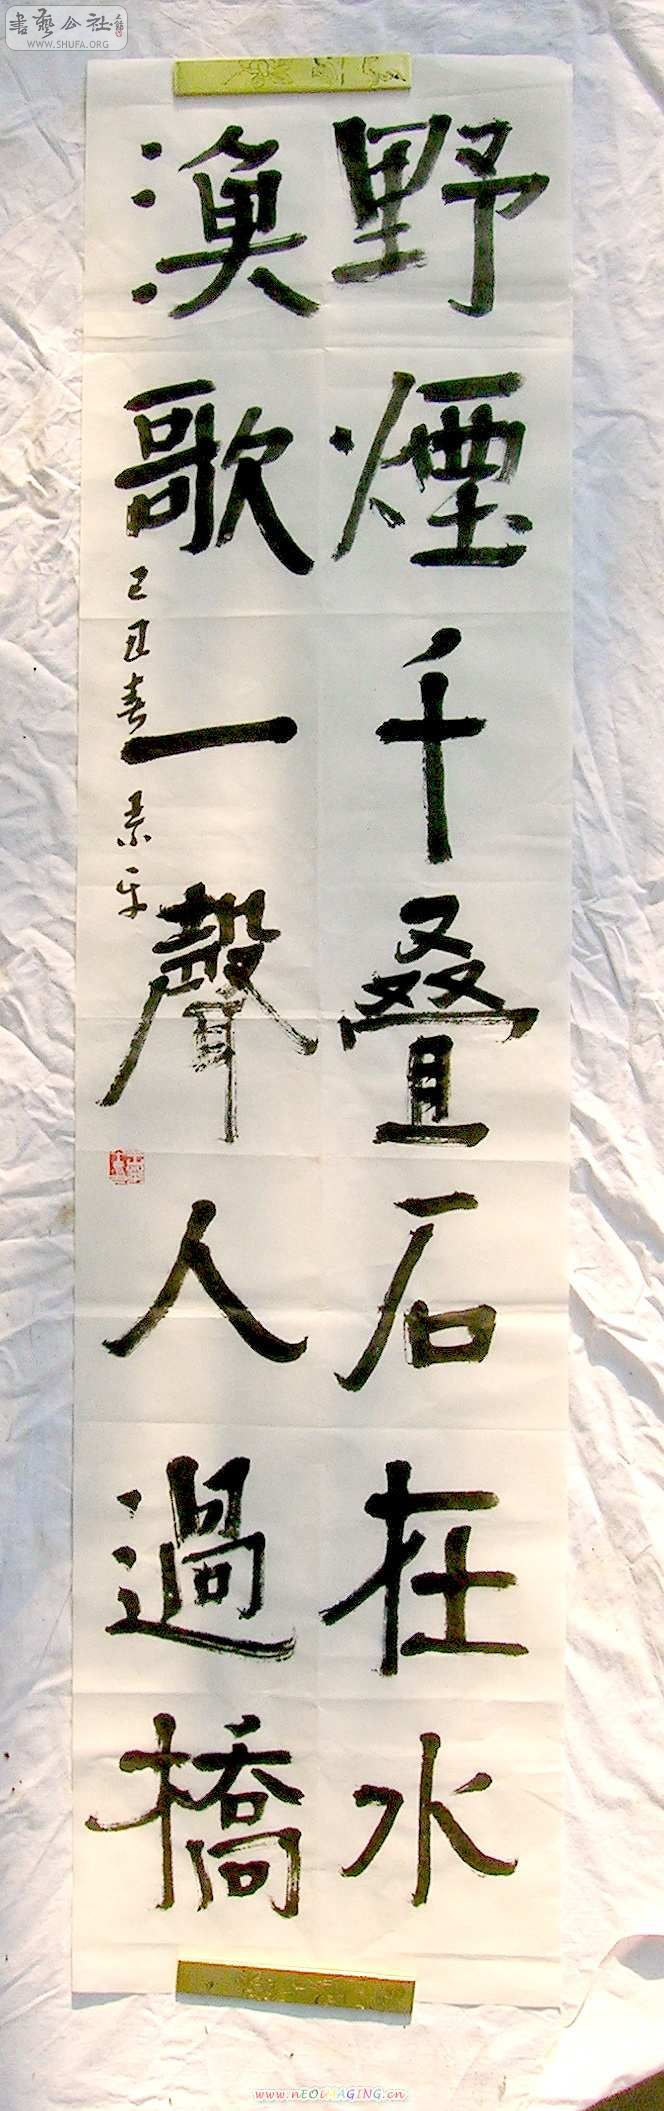 野煙千叠石在水
漁歌一聲人過橋
己丑春
書藝公社
WWW.SHUFA.ORG
www.nEOiMAGING.cn